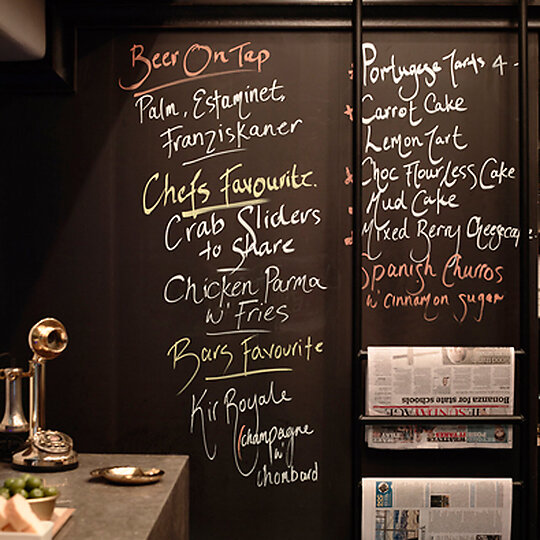 Beer On Tap
Palm, Estaminet,
Franziskaner
Chefs Favourite.
Crab Sliders
to Share
Chicken Parma
w' Fries
Bars Favourite
Kir Royale
(champagne
w
chombard
Portugese Tarts 4 -
Carrot Cake
Lemon Tart
Choc FlourLess Cake
Mud Cake
Mixed Berry Cheesecake
Spanish Churros
w' cinnamon sugar
Bonanza for state schools